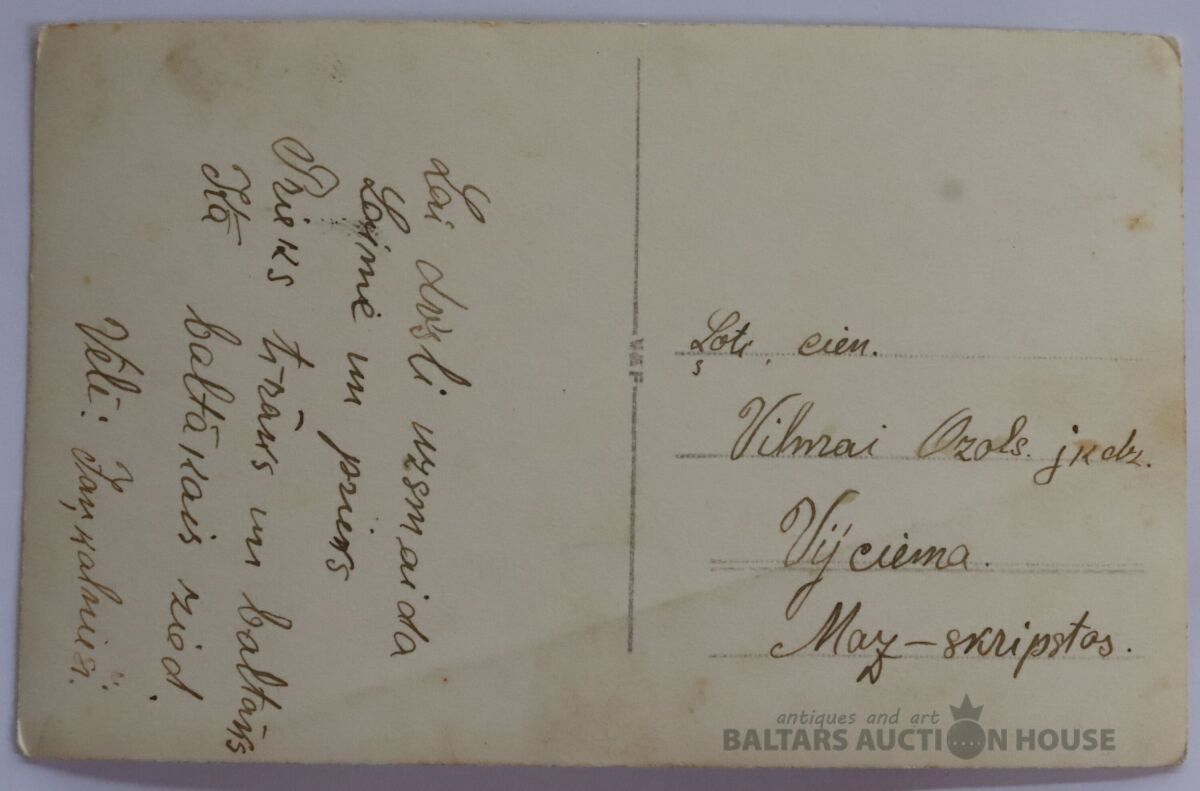 Lai dusli uzsmaida
Laime un prieks
Prieks tīrāks un baltāks
Kā baltākais zied
Vēlī: Jaunkalnieši.
VAP
Ļoti cien.
Vilmai Ozols. jkdz.
Vijciema.
Maz-skripstos.
antiques and art
BALTARS AUCTION HOUSE